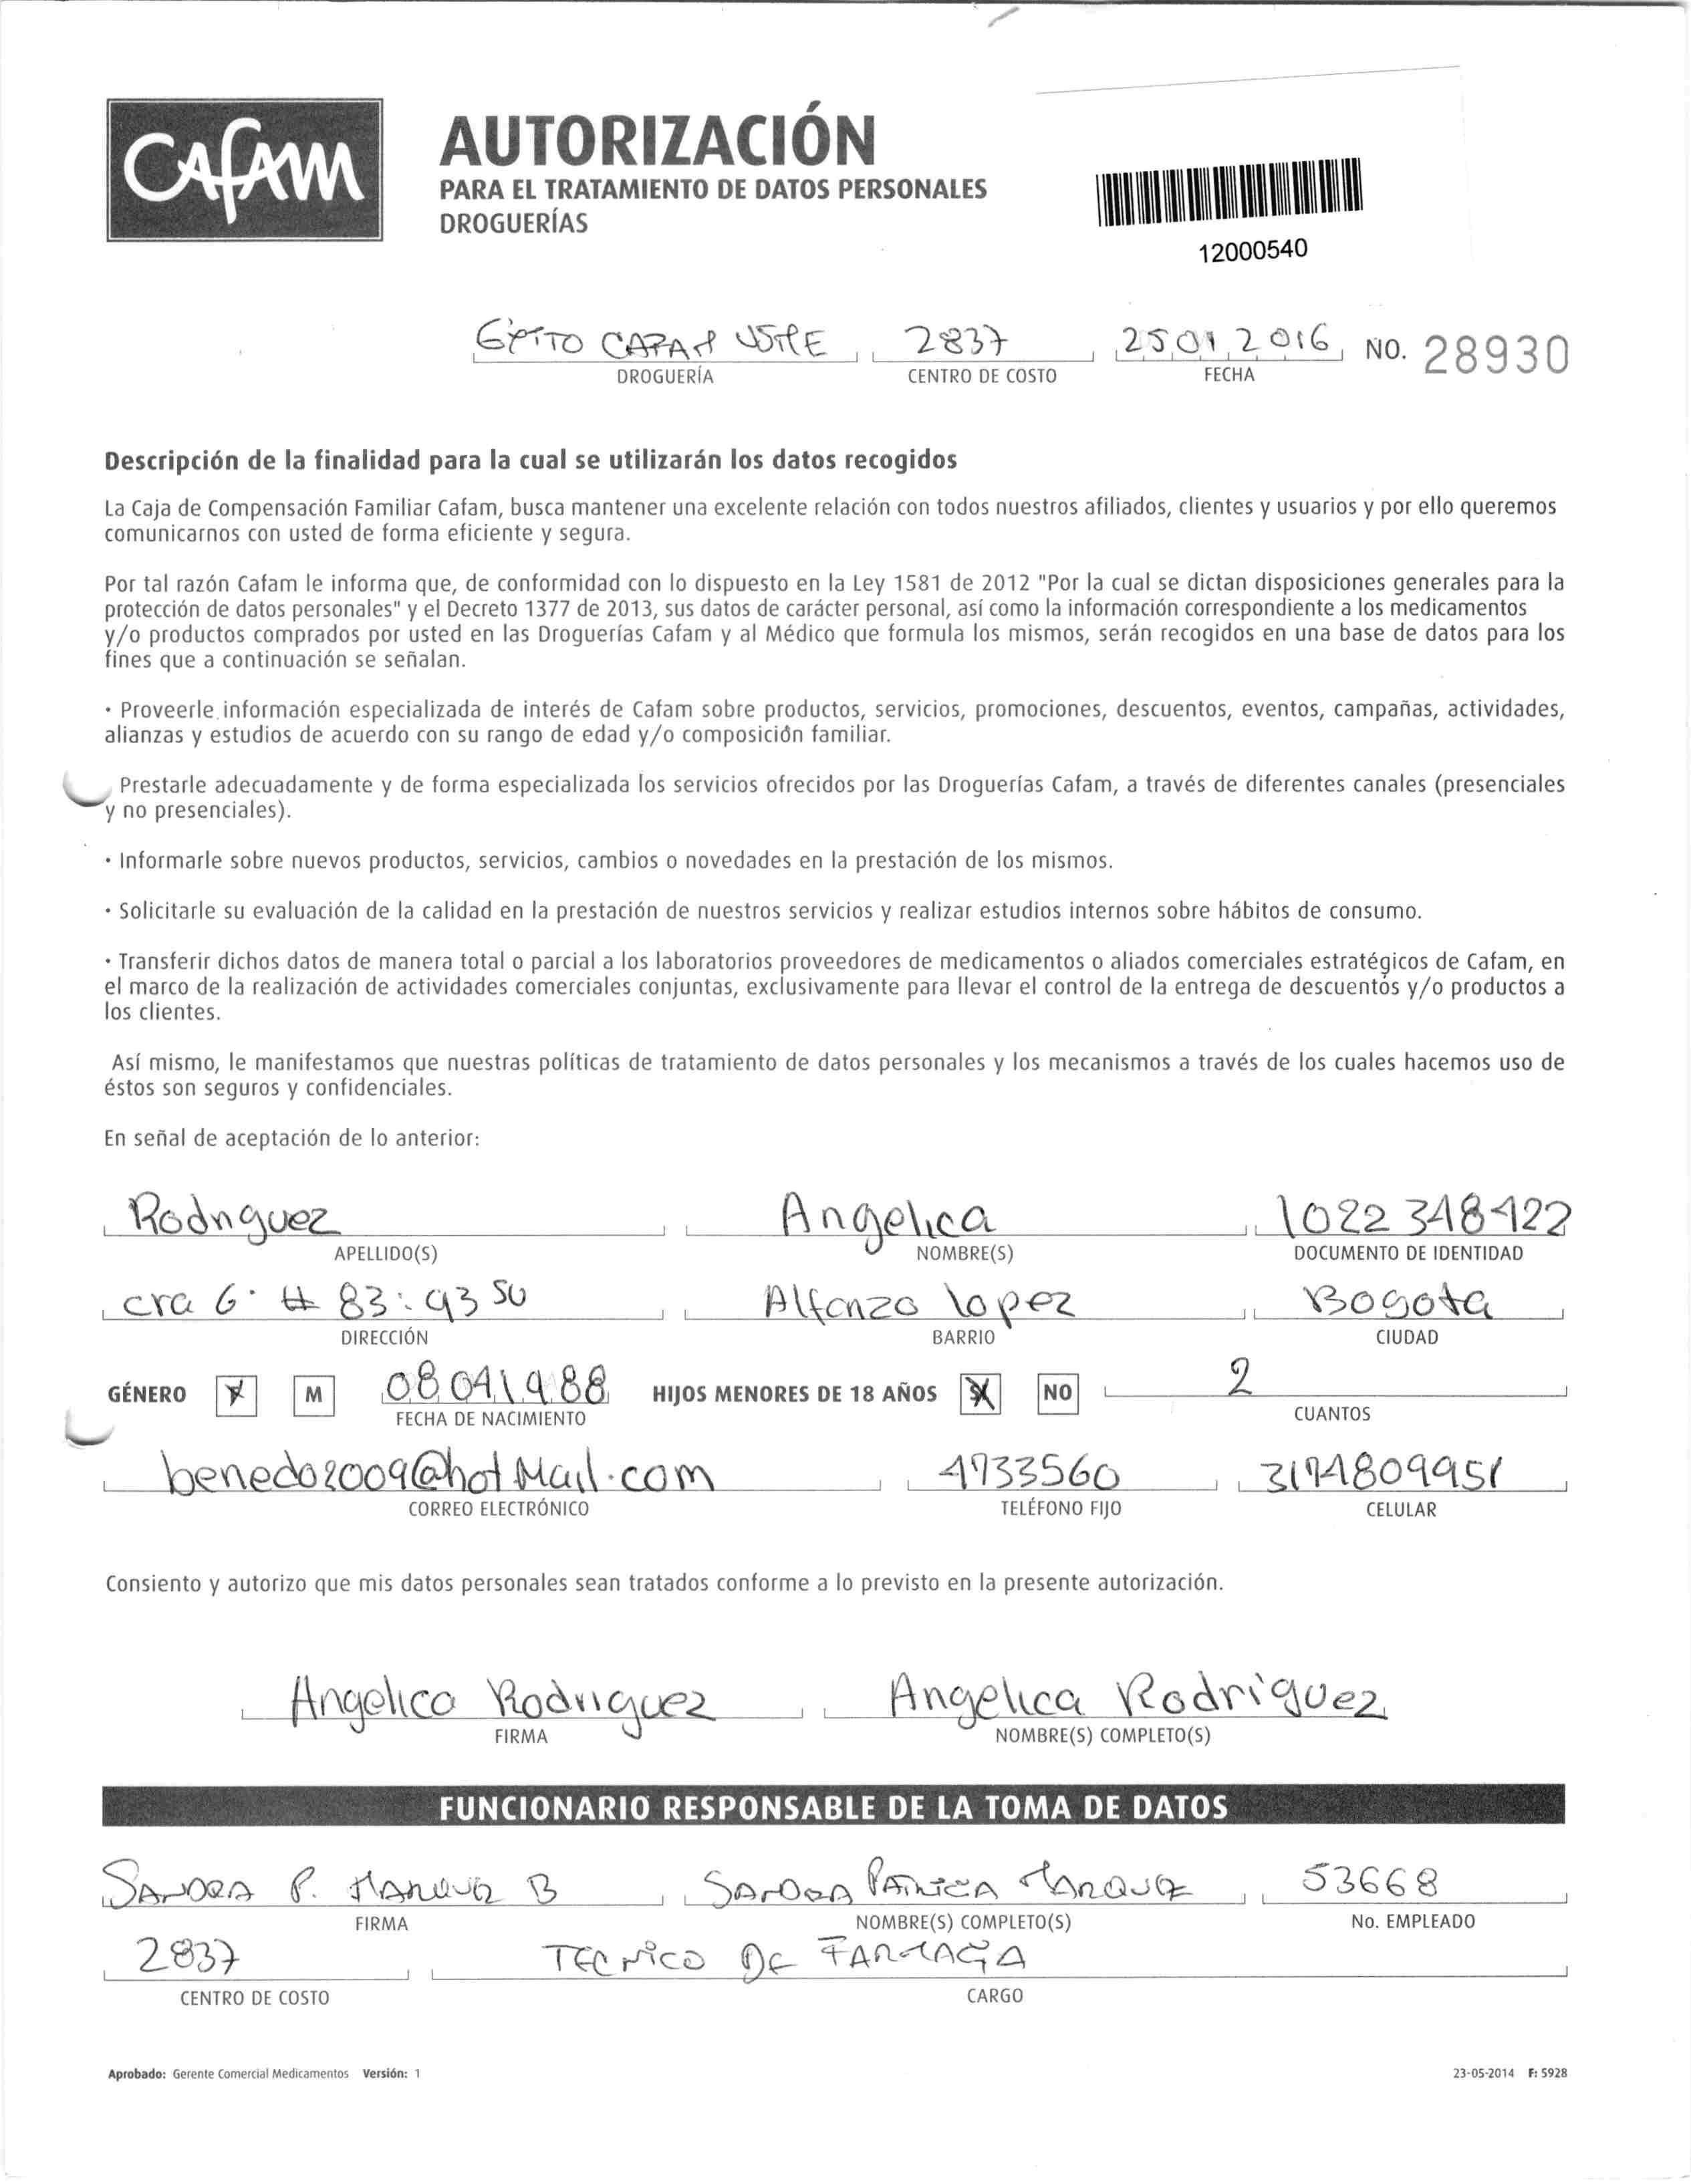 CAFAM
AUTORIZACIÓN
PARA EL TRATAMIENTO DE DATOS PERSONALES
DROGUERÍAS
12000540
CAFAM 2837 25 01 2016 NO. 28930
DROGUERÍA CENTRO DE COSTO FECHA
Descripción de la finalidad para la cual se utilizarán los datos recogidos
La Caja de Compensación Familiar Cafam, busca mantener una excelente relación con todos nuestros afiliados, clientes y usuarios y por ello queremos
comunicarnos con usted de forma eficiente y segura.
Por tal razón Cafam le informa que, de conformidad con lo dispuesto en la Ley 1581 de 2012 "Por la cual se dictan disposiciones generales para la
protección de datos personales" y el Decreto 1377 de 2013, sus datos de carácter personal, así como la información correspondiente a los medicamentos
y/o productos comprados por usted en las Droguerías Cafam y al Médico que formula los mismos, serán recogidos en una base de datos para los
fines que a continuación se señalan.
· Proveerle información especializada de interés de Cafam sobre productos, servicios, promociones, descuentos, eventos, campañas, actividades,
alianzas y estudios de acuerdo con su rango de edad y/o composición familiar.
Prestarle adecuadamente y de forma especializada los servicios ofrecidos por las Droguerías Cafam, a través de diferentes canales (presenciales
y no presenciales).
· Informarle sobre nuevos productos, servicios, cambios o novedades en la prestación de los mismos.
· Solicitarle su evaluación de la calidad en la prestación de nuestros servicios y realizar estudios internos sobre hábitos de consumo.
· Transferir dichos datos de manera total o parcial a los laboratorios proveedores de medicamentos o aliados comerciales estratégicos de Cafam, en
el marco de la realización de actividades comerciales conjuntas, exclusivamente para llevar el control de la entrega de descuentos y/o productos a
los clientes.
Así mismo, le manifestamos que nuestras políticas de tratamiento de datos personales y los mecanismos a través de los cuales hacemos uso de
éstos son seguros y confidenciales.
En señal de aceptación de lo anterior:
Rodriguez Angelica 1022348422
APELLIDO(S) NOMBRE(S) DOCUMENTO DE IDENTIDAD
cra 6 # 83 : 93 SU Alfonzo lopez Bogota
DIRECCIÓN BARRIO CIUDAD
GÉNERO X M 08 04 1988 HIJOS MENORES DE 18 AÑOS X NO 2
FECHA DE NACIMIENTO CUANTOS
benedo2009@hotMail.com 4733560 3174809951
CORREO ELECTRÓNICO TELÉFONO FIJO CELULAR
Consiento y autorizo que mis datos personales sean tratados conforme a lo previsto en la presente autorización.
Angelica Rodriguez Angelica Rodriguez
FIRMA NOMBRE(S) COMPLETO(S)
FUNCIONARIO RESPONSABLE DE LA TOMA DE DATOS
SANDRA P. MARQUEZ B SANDRA PATRICIA MARQUEZ 53668
FIRMA NOMBRE(S) COMPLETO(S) No. EMPLEADO
2837 TECNICO DE FARMACIA
CENTRO DE COSTO CARGO
Aprobado: Gerente Comercial Medicamentos Versión: 1 23-05-2014 F: 5928